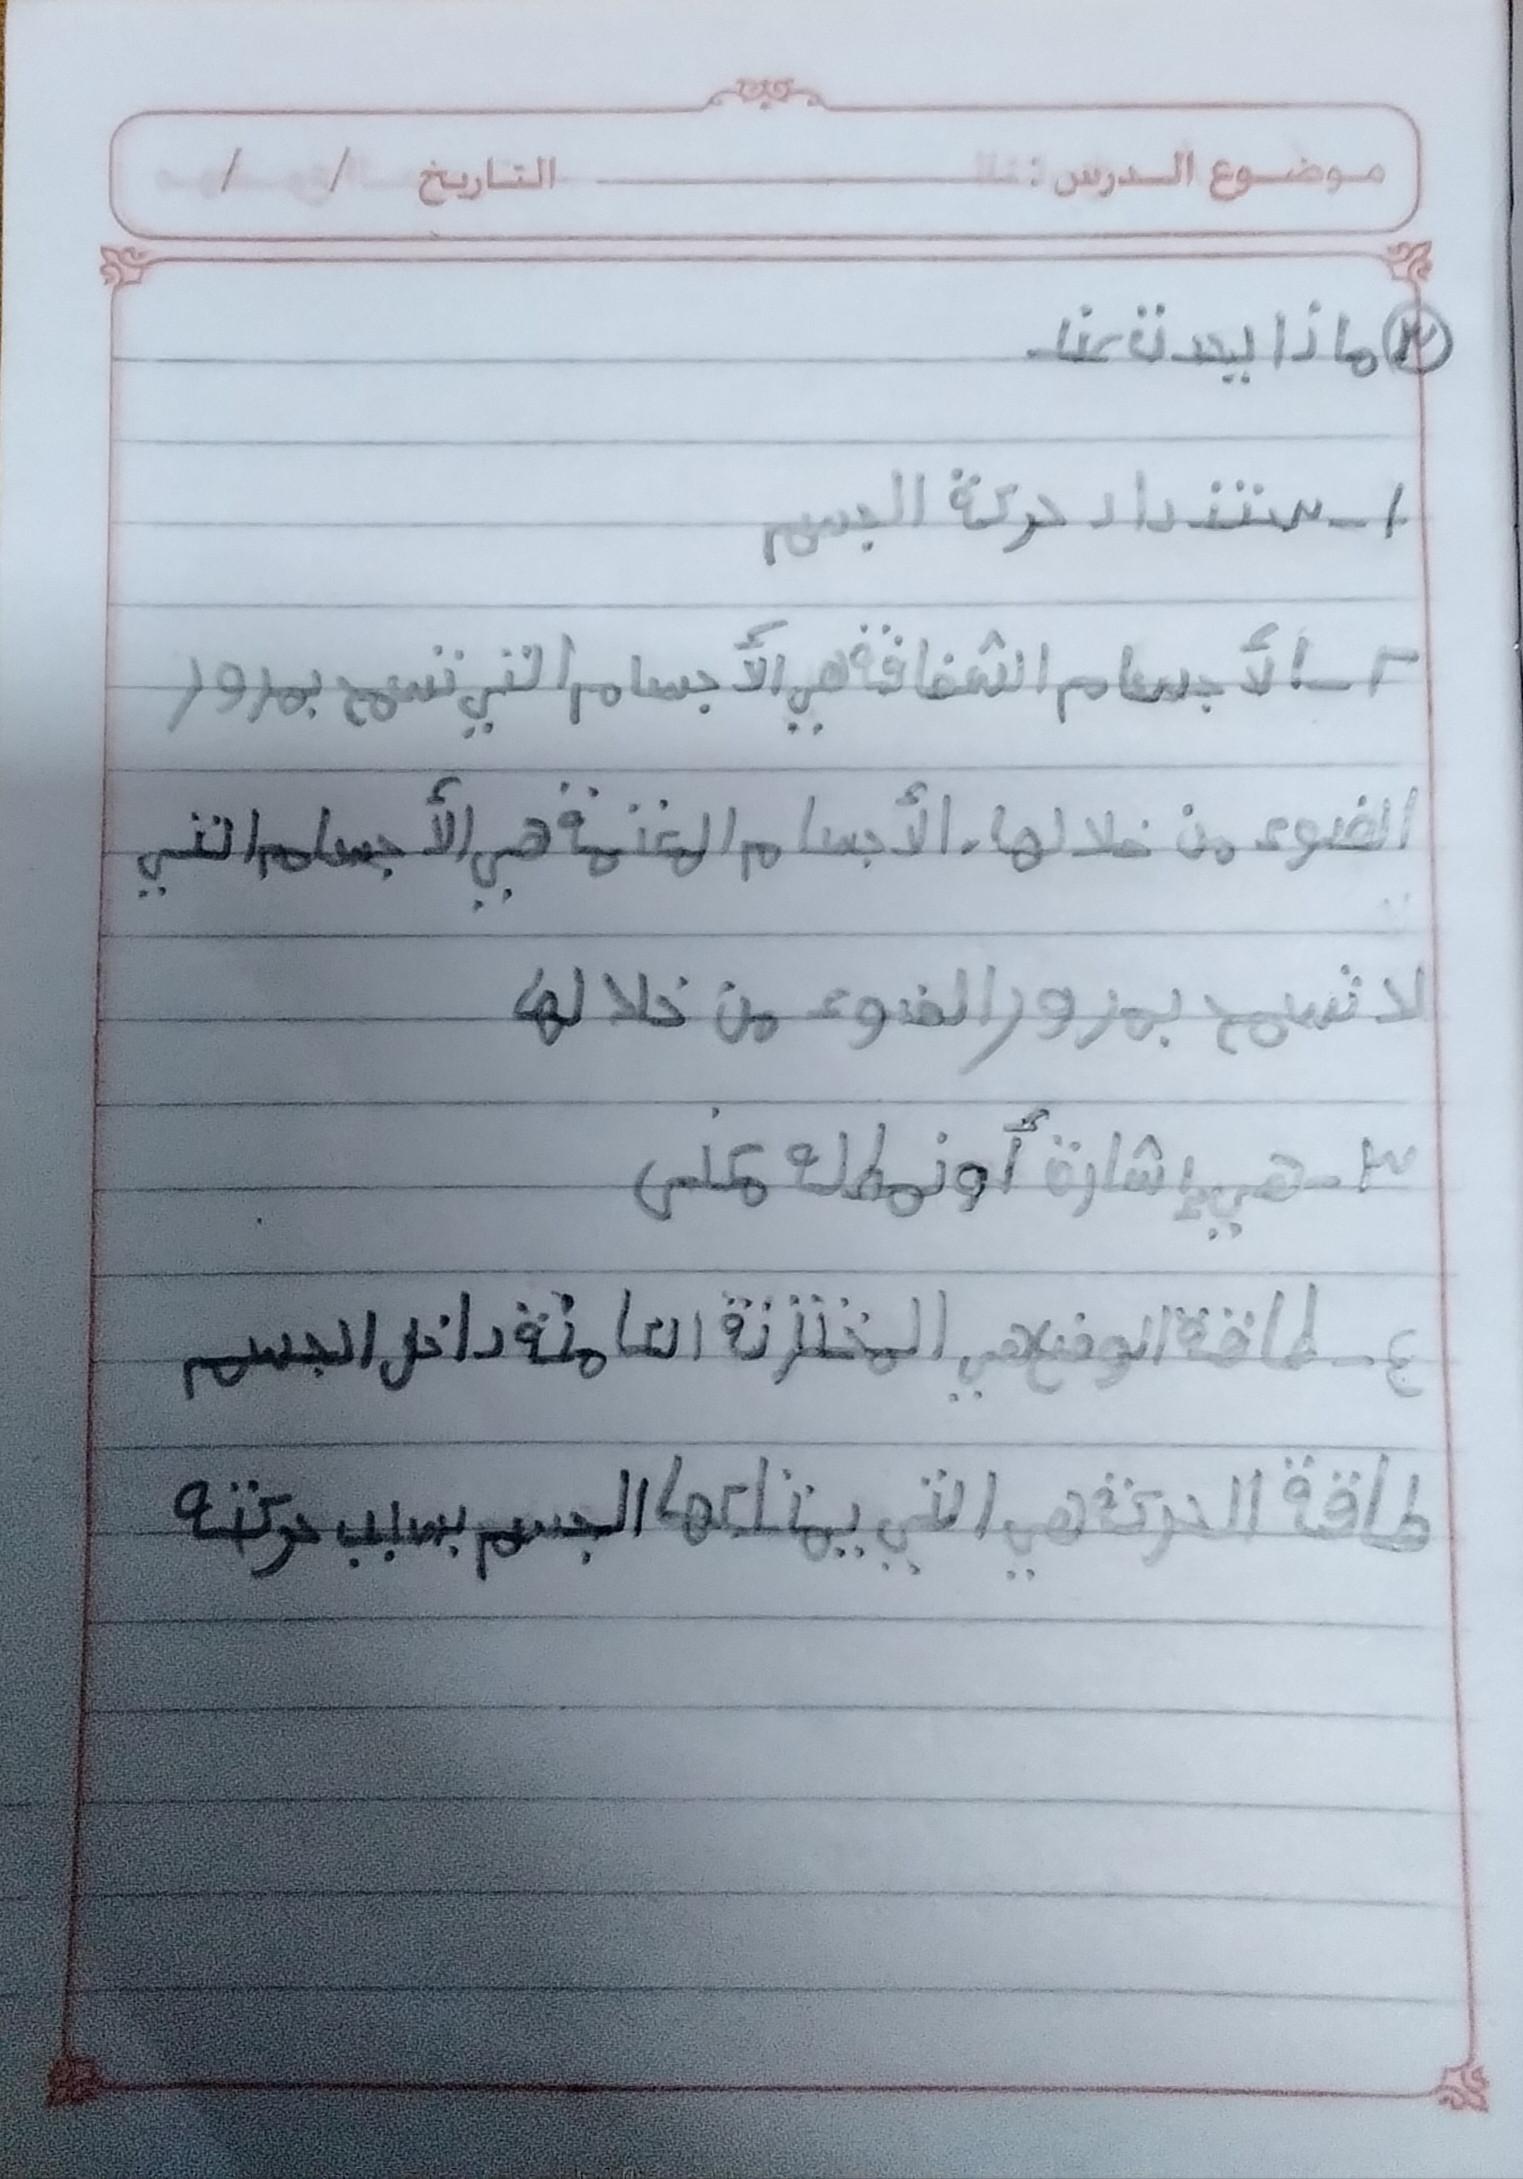 موضوع الدرس: التاريخ / /
٣ ماذا يحدث عند
١- ستزداد حركة الجسم
٢- الأجسام الشفافة هي الأجسام التي تسمح بمرور
الضوء من خلالها. الأجسام المعتمة هي الأجسام التي
لا تسمح بمرور الضوء من خلالها
٣- هي إشارة أو نمط له معنى
٤- طاقة الوضع هي المختزنة الكامنة داخل الجسم
طاقة الحركة هي التي يمتلكها الجسم بسبب حركته